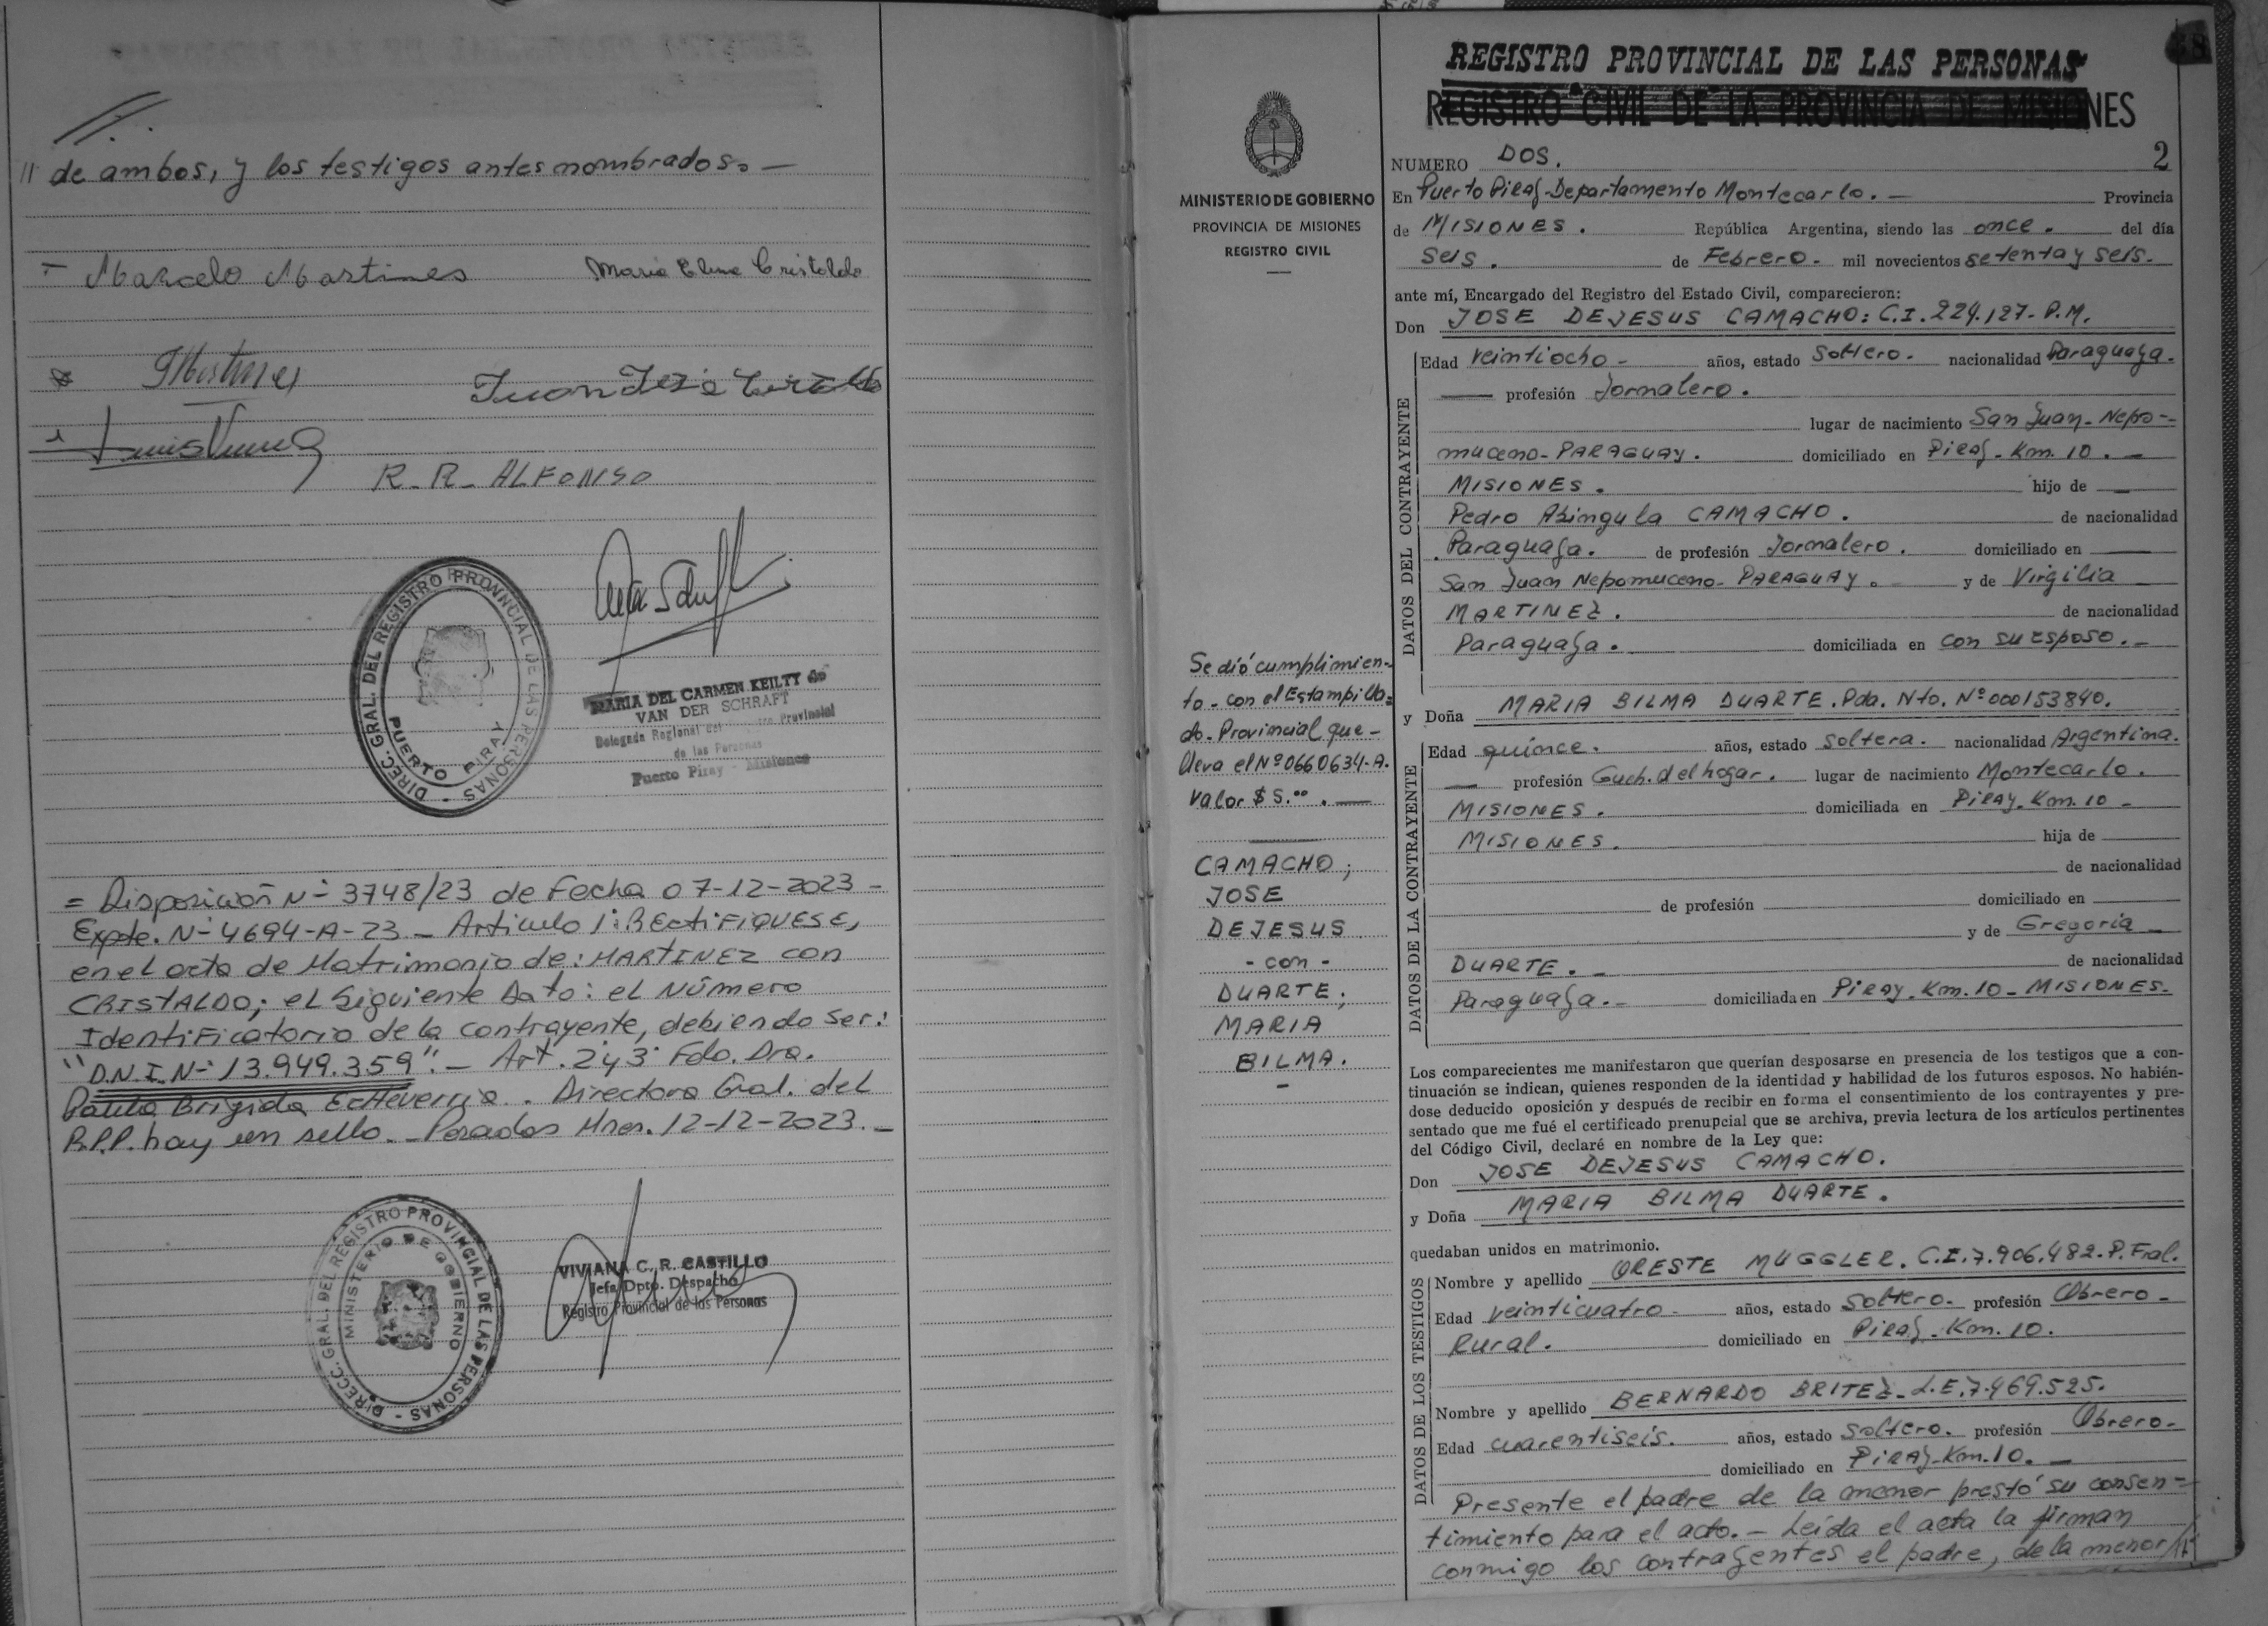 // de ambos, y los testigos antes nombrados.-
Marcelo Martines
Maria Elena Cristaldo
Juan José
R.R. ALFONSO
DIREC. GRAL. DEL REGISTRO PROVINCIAL DE LAS PERSONAS -
PUERTO PIRAY
MARIA DEL CARMEN KEILTY de
VAN DER SCHRAFT
Delegada Regional del Provincial
de las Personas
Puerto Piray - Misiones
= Disposición N- 3748/23 de Fecha 07-12-2023 -
Expte. N- 4694-A-23 - Articulo 1: RECTIFIQUESE,
en el acta de Matrimonio de: MARTINEZ con
CRISTALDO; el siguiente Dato: el Número
Identificatorio de la contrayente, debiendo ser:
"D.N.I. N- 13.949.359".- Art. 2y3 Fdo. Dra.
Brigida Echeverria. Directora Gral. del
R.P.P. hay un sello.- Posadas Mnes. 12-12-2023.-
DIRECC. GRAL. DEL REGISTRO PROVINCIAL DE LAS PERSONAS -
MINISTERIO DE GOBIERNO
VIVIANA C. R. CASTILLO
Jefa Dpto. Despacho
Registro Provincial de las Personas
REGISTRO PROVINCIAL DE LAS PERSONAS
REGISTRO CIVIL DE LA PROVINCIA DE MISIONES
MINISTERIO DE GOBIERNO
PROVINCIA DE MISIONES
REGISTRO CIVIL
NUMERO DOS. 2
En Puerto Piray-Departamento Montecarlo.- Provincia
de MISIONES. República Argentina, siendo las once. del día
seis. de Febrero. mil novecientos setenta y seis.
ante mí, Encargado del Registro del Estado Civil, comparecieron:
Don JOSE DEJESUS CAMACHO: C.I. 224.127- P.M.
DATOS DEL CONTRAYENTE
Edad veintiocho - años, estado Soltero. nacionalidad Paraguaya.
profesión Jornalero.
lugar de nacimiento San Juan-Nepo-
muceno-PARAGUAY. domiciliado en Piray-Km. 10.-
MISIONES. hijo de
Pedro CAMACHO. de nacionalidad
Paraguaya. de profesión Jornalero. domiciliado en
San Juan Nepomuceno-PARAGUAY. y de Virgilia
MARTINEZ. de nacionalidad
Paraguaya. domiciliada en con su esposo.-
y Doña MARIA BILMA DUARTE. Pda. Nto. Nº 000153840.
DATOS DE LA CONTRAYENTE
Edad quince. años, estado Soltera. nacionalidad Argentina.
profesión Queh. del hogar. lugar de nacimiento Montecarlo.
MISIONES. domiciliada en Piray-Km. 10-
MISIONES. hija de
de nacionalidad
de profesión domiciliado en
y de Gregoria
DUARTE.- de nacionalidad
Paraguaya.- domiciliada en Piray-Km. 10-MISIONES.
Se dió cumplimien-
to-con el Estampilla-
do-Provincial que-
lleva el Nº 0660634-A.
Valor $ 5.00.-
CAMACHO;
JOSE
DEJESUS
- con -
DUARTE;
MARIA
BILMA.
Los comparecientes me manifestaron que querían desposarse en presencia de los testigos que a con-
tinuación se indican, quienes responden de la identidad y habilidad de los futuros esposos. No habién-
dose deducido oposición y después de recibir en forma el consentimiento de los contrayentes y pre-
sentado que me fué el certificado prenupcial que se archiva, previa lectura de los artículos pertinentes
del Código Civil, declaré en nombre de la Ley que:
Don JOSE DEJESUS CAMACHO.
y Doña MARIA BILMA DUARTE.
quedaban unidos en matrimonio.
DATOS DE LOS TESTIGOS
Nombre y apellido ORESTE MUGGLER. C.I. 7.906.482. P. Fral.
Edad veinticuatro - años, estado Soltero. profesión Obrero-
Rural. domiciliado en Piray-Km. 10.
Nombre y apellido BERNARDO BRITEZ-L.E. 7.469.525.
Edad cuarentiseis. años, estado Soltero. profesión Obrero-
domiciliado en Piray-Km. 10.-
Presente el padre de la menor prestó su consen-
timiento para el acto.- Leída el acta la firman
conmigo los contrayentes el padre, de la menor //